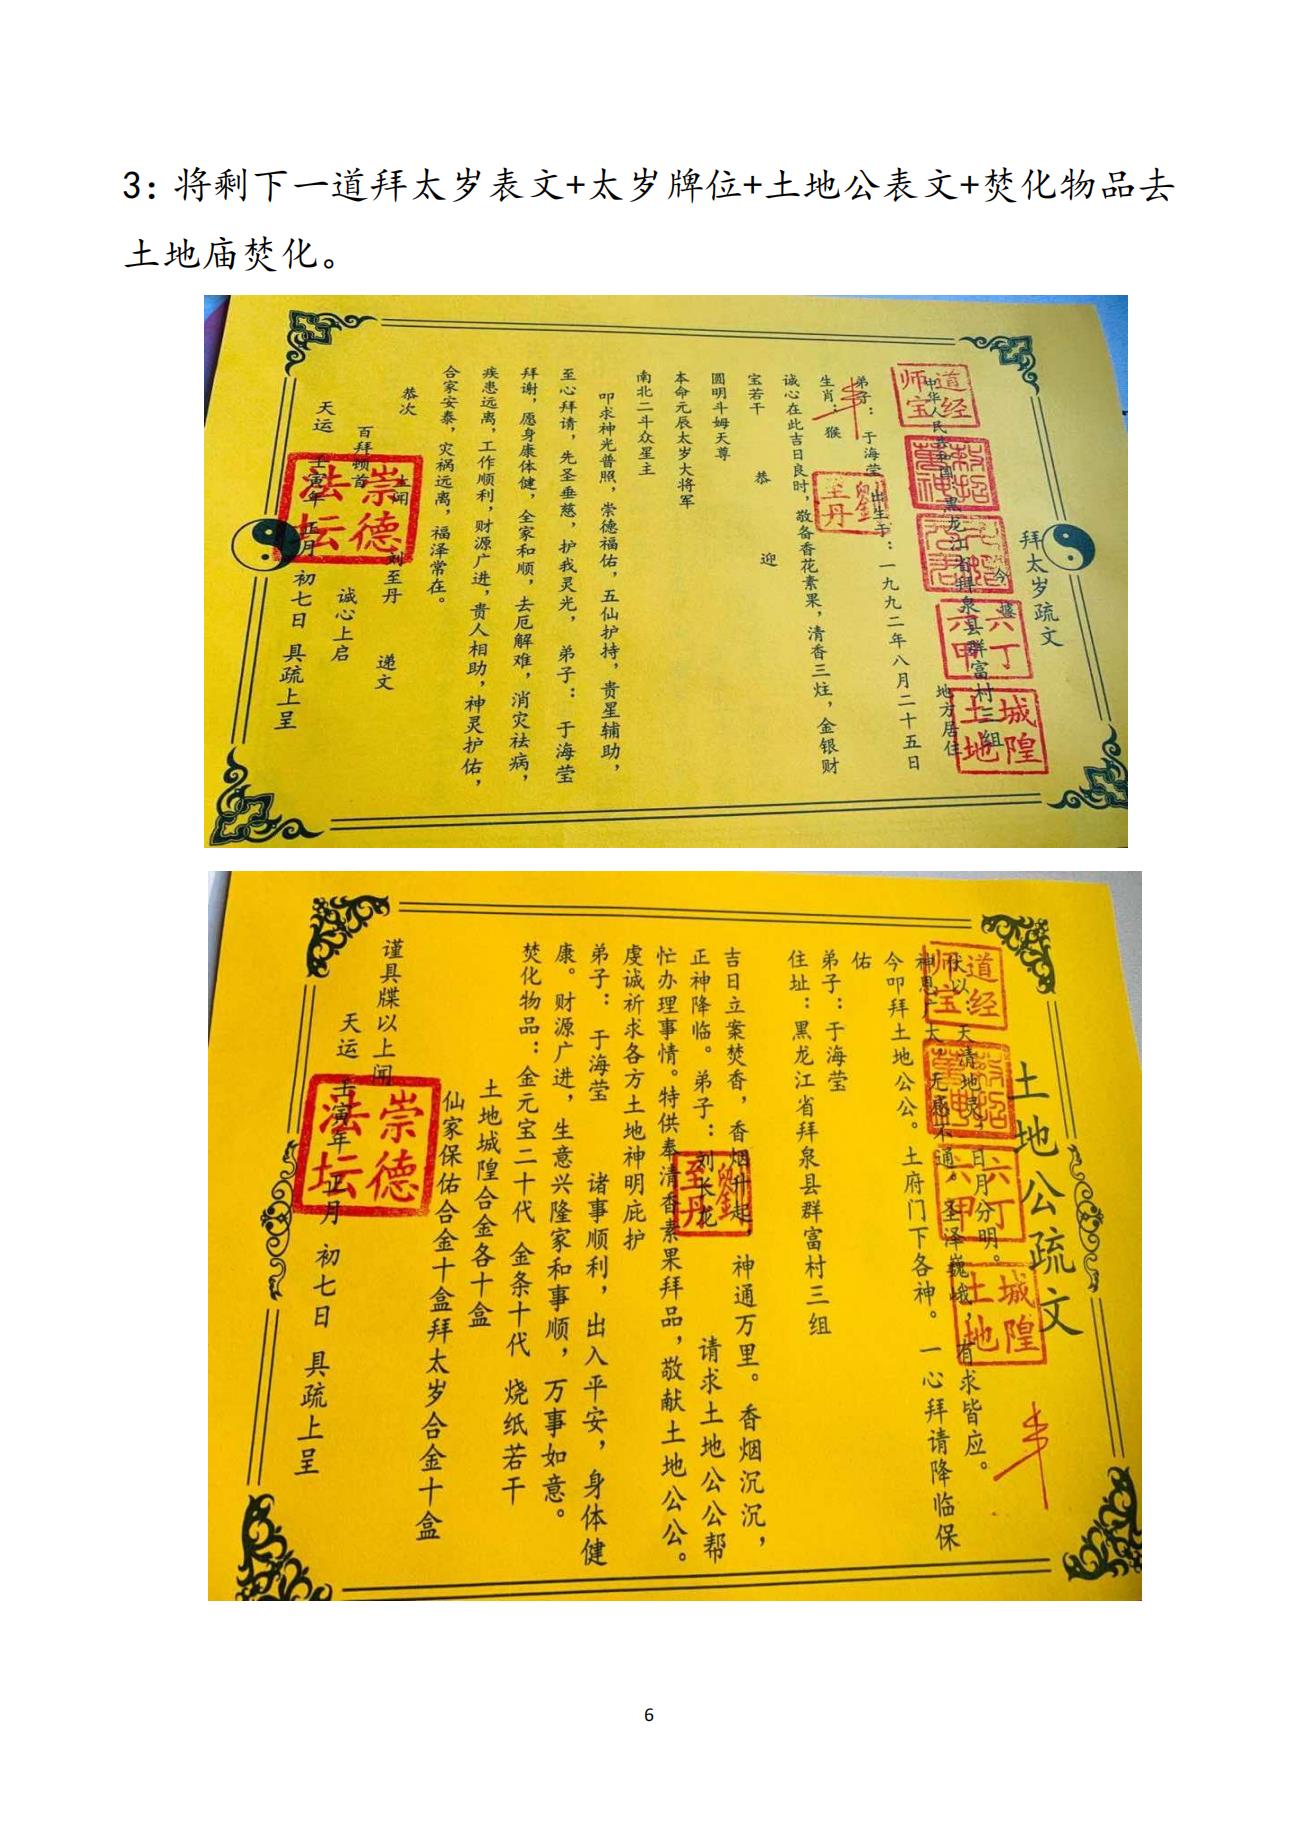 3：将剩下一道拜太岁表文+太岁牌位+土地公表文+焚化物品去
土地庙焚化。
拜太岁疏文
今 据
中华人民共和国 黑龙江省拜泉县群富村三组
地方居住
弟子：于海莹 出生于：一九九二年八月二十五日
生肖：猴
诚心在此吉日良时，敬备香花素果，清香三炷，金银财
宝若干
恭 迎
圆明斗姆天尊
本命元辰太岁大将军
南北二斗众星主
叩求神光普照，崇德福佑，五仙护持，贵星辅助，
至心拜请，先圣垂慈，护我灵光， 弟子： 于海莹
拜谢，愿身康体健，全家和顺，去厄解难，消灾祛病，
疾患远离，工作顺利，财源广进，贵人相助，神灵护佑，
合家安泰，灾祸远离，福泽常在。
恭次
上闻
刘至丹 递文
百拜顿首
诚心上启
天运 壬寅年 正月 初七日 具疏上呈
道经
师宝
六丁
六甲
城隍
土地
劉
至丹
崇德
法坛
土地公疏文
伏以：天清地灵，日月分明。
神恩广大，无感不通，圣泽巍峨，有求皆应。
今叩拜土地公公。土府门下各神。一心拜请降临保
佑
弟子：于海莹
住址：黑龙江省拜泉县群富村三组
吉日立案焚香，香烟升起，神通万里。香烟沉沉，
正神降临。弟子：刘长龙 请求土地公公帮
忙办理事情。特供奉清香素果拜品，敬献土地公公。
虔诚祈求各方土地神明庇护
弟子： 于海莹 诸事顺利，出入平安，身体健
康。财源广进，生意兴隆家和事顺，万事如意。
焚化物品：金元宝二十代 金条十代 烧纸若干
土地城隍合金各十盒
仙家保佑合金十盒拜太岁合金十盒
谨具牒以上闻
天运 壬寅年 正月 初七日 具疏上呈
道经
师宝
六丁
六甲
城隍
土地
劉
至丹
崇德
法坛
6